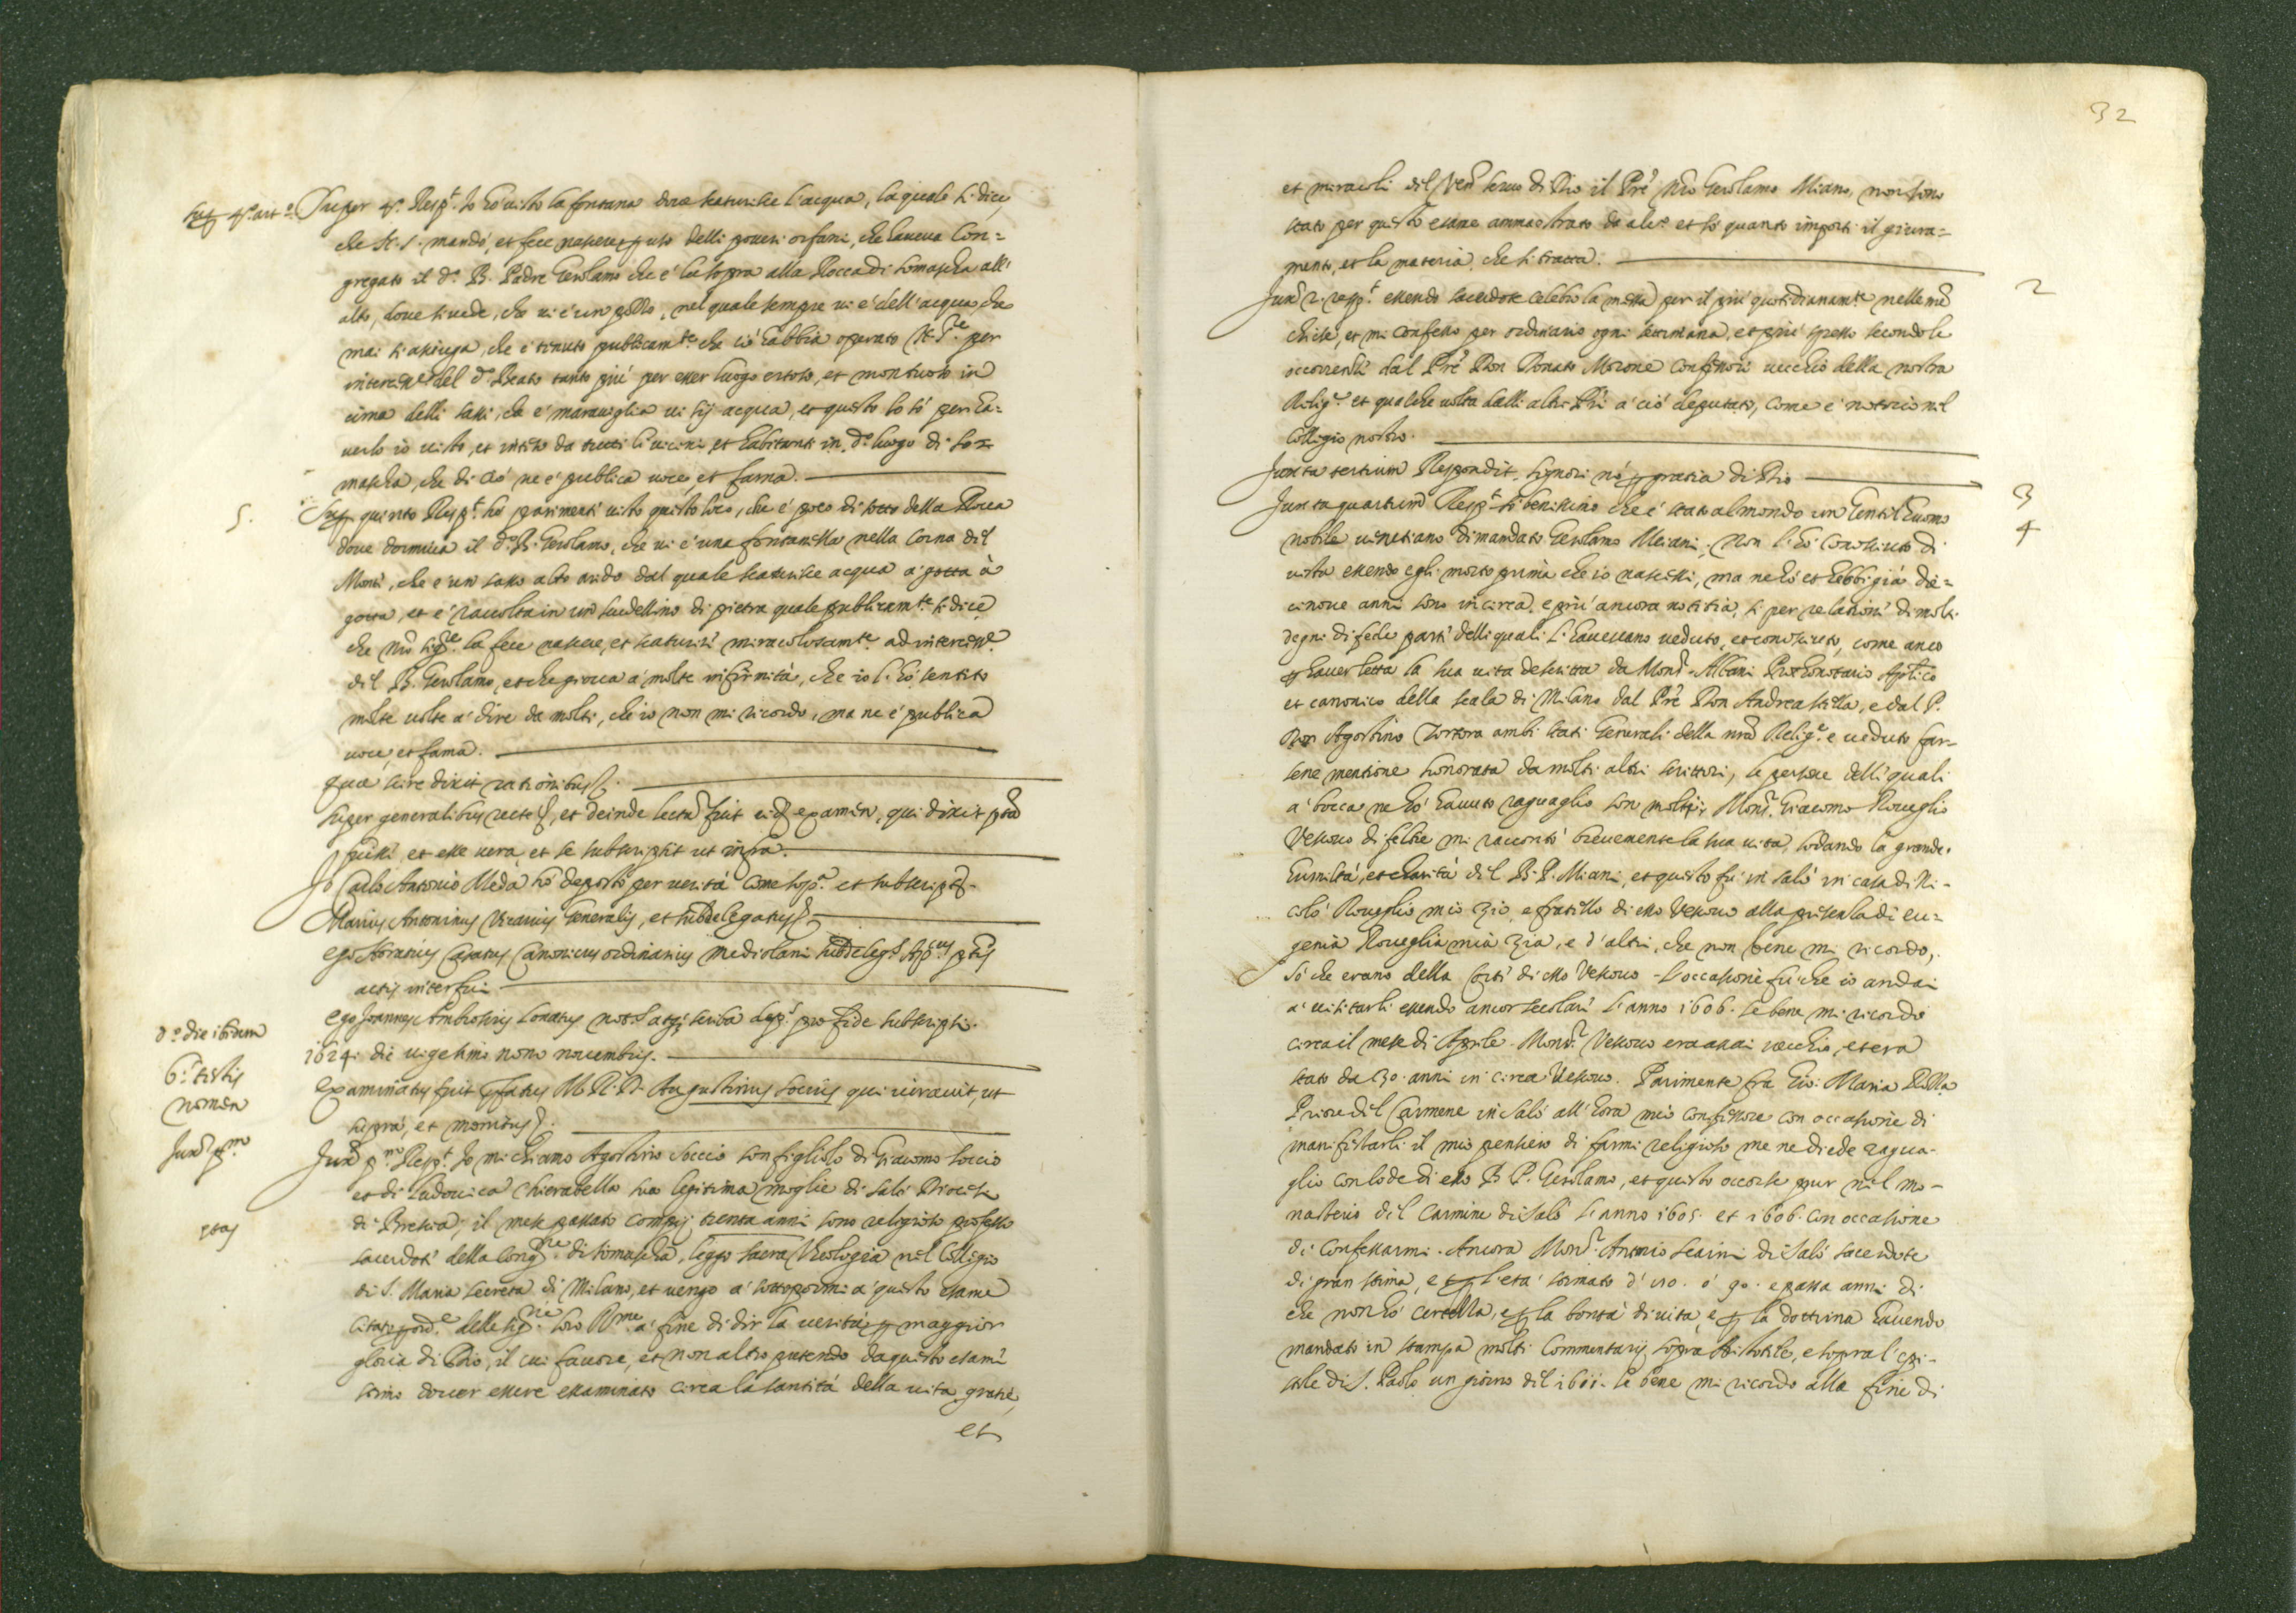 Sup 4.º art.º Super 4.º Resp.t Io hò visto la fontana dove scaturisce l'acqua, la quale si dice,
che N. S. mandò, et fece nascere p uso delli poveri orfani, che haveva Con=
gregato il d.º B. Padre Gerolamo che è la sopra alla Rocca di Somascha all'
alto, dove si vede, che vi è un pozzo, nel quale sempre vi è dell'acqua che
mai si asciuga, che è tenuto publicam.te che ciò habbia operato N. S.re per
intercess.ne del d.º Beato tanto più per esser luogo ertoso, et montuoso in
cima delli sassi, che è maraviglia vi sij acqua, et questo lo sò per ha=
verlo io visto, et inteso da tutti li vicini et habitanti in d.º luogo di So=
mascha, che di ciò ne è publica voce, et fama.
5. Sup quinto Resp.t hò parimenti visto questo loco, che è poco di sotto della Rocca
dove dormiva il d.º B. Gerolamo, che vi è una fontanella nella Corna del
Monte, che è un sasso alto arido dal quale scaturisce acqua a gotta à
gotta, et è raccolta in un suedellino di pietra quale publicam.te si dice
che Nro Sig.re la fece nascere, et scaturire miracolosam.te ad intercess.ne
del B. Gerolamo, et che giova a molte infirmità, che io l'hò sentito
molte volte à dire da molti, che io non mi ricordo, ma ne è publica
voce, et fama.
quæ scire dixit rationibus
super generalibus recte, et deinde lectu fuit eid examen, qui dixit pnd
fuisse, et esse vera et se subscripsit ut infra.
Io Carlo Antonio Meda hò deposto per verità come sop.ª et subscripsi.
Marius Antoninus Vicarius Generalis, et subdelegatus
ego Horatius Casatus Canonicus ordinarius mediolani subdeleg.s Ap.cus ptis
actis interfui
ego Joannes Ambrosius Lonatus nots actij scriba dep.s pro fide subscripsi.
d.º die ibidem 1624. die vigesimo nono novembris.
6.s testis Examinatus fuit pfatus M. R. D. Augustinus Soccius qui iuravit, ut
nomen supra, et monitus.
Jux.ª p.mo Jux.ª p.mo Resp.t Io mi chiamo Agostino Soccio son figliolo di Giacomo Soccio
et di Ludovica Chierabella sua legitima moglie di Salò Diocese
ætas di Brescia; il mese passato compij trenta anni sono religioso professo
sacerdote della Cong.ne di Somascha, leggo sacra Theologia nel Colleggio
di S. Maria Secreta di Milano, et vengo a sottopormi a questo esame
Citato p ord.e delle Sig.rie loro R.me a fine di dir la verità p maggior
gloria di Dio, il cui favore, et non altro pretendo da questo esame
stimo dover essere essaminato circa la santità della vita, gratie,
et
32
et miracoli del Ven. servo di Dio il Pre Nro Gerolamo Miano, non sono
stato per questo esame ammaestrato da alc.º et sò quanto importi il giura=
mento, et la materia, che si tratta.
2
Jux.ª 2. resp.t essendo sacerdote celebro la messa per il più quotidianam.te nelle nre
chiese, et mi confesso per ordinario ogni settimana, et più spesso secondo le
occorrenze dal Pre Don Donato Morone Confessore vecchio della nostra
Relig.e et qualche volta dalli altri Pri a ciò deputato, come è noto nel
Collegio nostro.
3
Juxta tertium Respondit, Signori nò p gratia di Dio
4
Juxta quartum Resp.t si benissimo che è stato al mondo un Gentil'huomo
nobile venetiano dimandato Gerolamo Miani; Non l'hò conosciuto di
vista essendo egli morto prima che io nascessi, ma ne hò et hebbi già die=
cinove anni sono incirca, e più ancora notitia, si per relationi di molti
degni di fede parte delli quali l'havevano veduto, et conosciuto, come anco
p haver letta la sua vita descritta da Mons.r Albani Prothonotario Ap.lico
et canonico della scala di Milano dal Pre Don Andrea Stella, e dal P.
Don Agostino Tortora ambi stati Generali della nra Relig.e e veduto far=
sene mentione honorata da molti altri scrittori, le persone delli quali
a bocca ne hò havuto raguaglio son molte; Mons.r Giacomo Roveglio
Vescovo di feltre mi raccontò brevemente la sua vita, lodando la grande
humiltà, et charità del B. P. Miani, et questo fù in Salò in casa di Ni-
colò Roveglio mio zio, e fratello di esso Vescovo alla presenza di eu=
genia Roveglia mia zia, e d'altri, che non bene mi ricordo,
sò che erano della Corte di esso Vescovo. L'occasione fù che io andai
a visitarli essendo ancor secolare l'anno 1606. se bene mi ricordo
circa il mese di Aprile. Mons.r Vescovo era assai vecchio, et era
stato da 30. anni in circa Vescovo. Parimente fra Gio: Maria
Priore del Carmene in Salò all'hora mio confessore con occasione di
manifestarli il mio pensiero di farmi religioso me ne diede ragua-
glio con lode di esso B. P. Gerolamo, et questo occorse pur nel mo-
nasterio del Carmine di Salò l'anno 1605. et 1606. con occasione
di confessarmi. Ancora Mons.r Antonio Scaini di Salò sacerdote
di gran stima, e p l'età stimato d' 110. ò 90. e passa anni di
che non hò certezza, e p la bontà di vita, e p la dottrina havendo
mandato in stampa molti Commentarij sopra Aristotile, e sopra l'epi-
stole di S. Paolo un giorno del 1611. se bene mi ricordo alla fine di